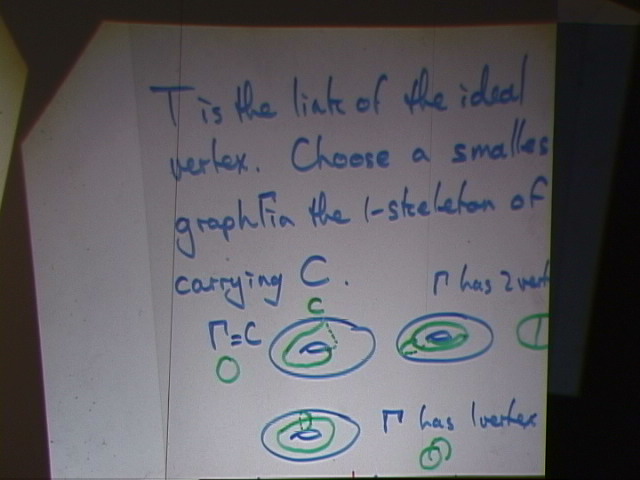 T is the link of the ideal
vertex. Choose a smalles
graph Γ in the 1-skeleton of
carrying C.
Γ has 2 vert
C
Γ=C
Γ has 1 vertex